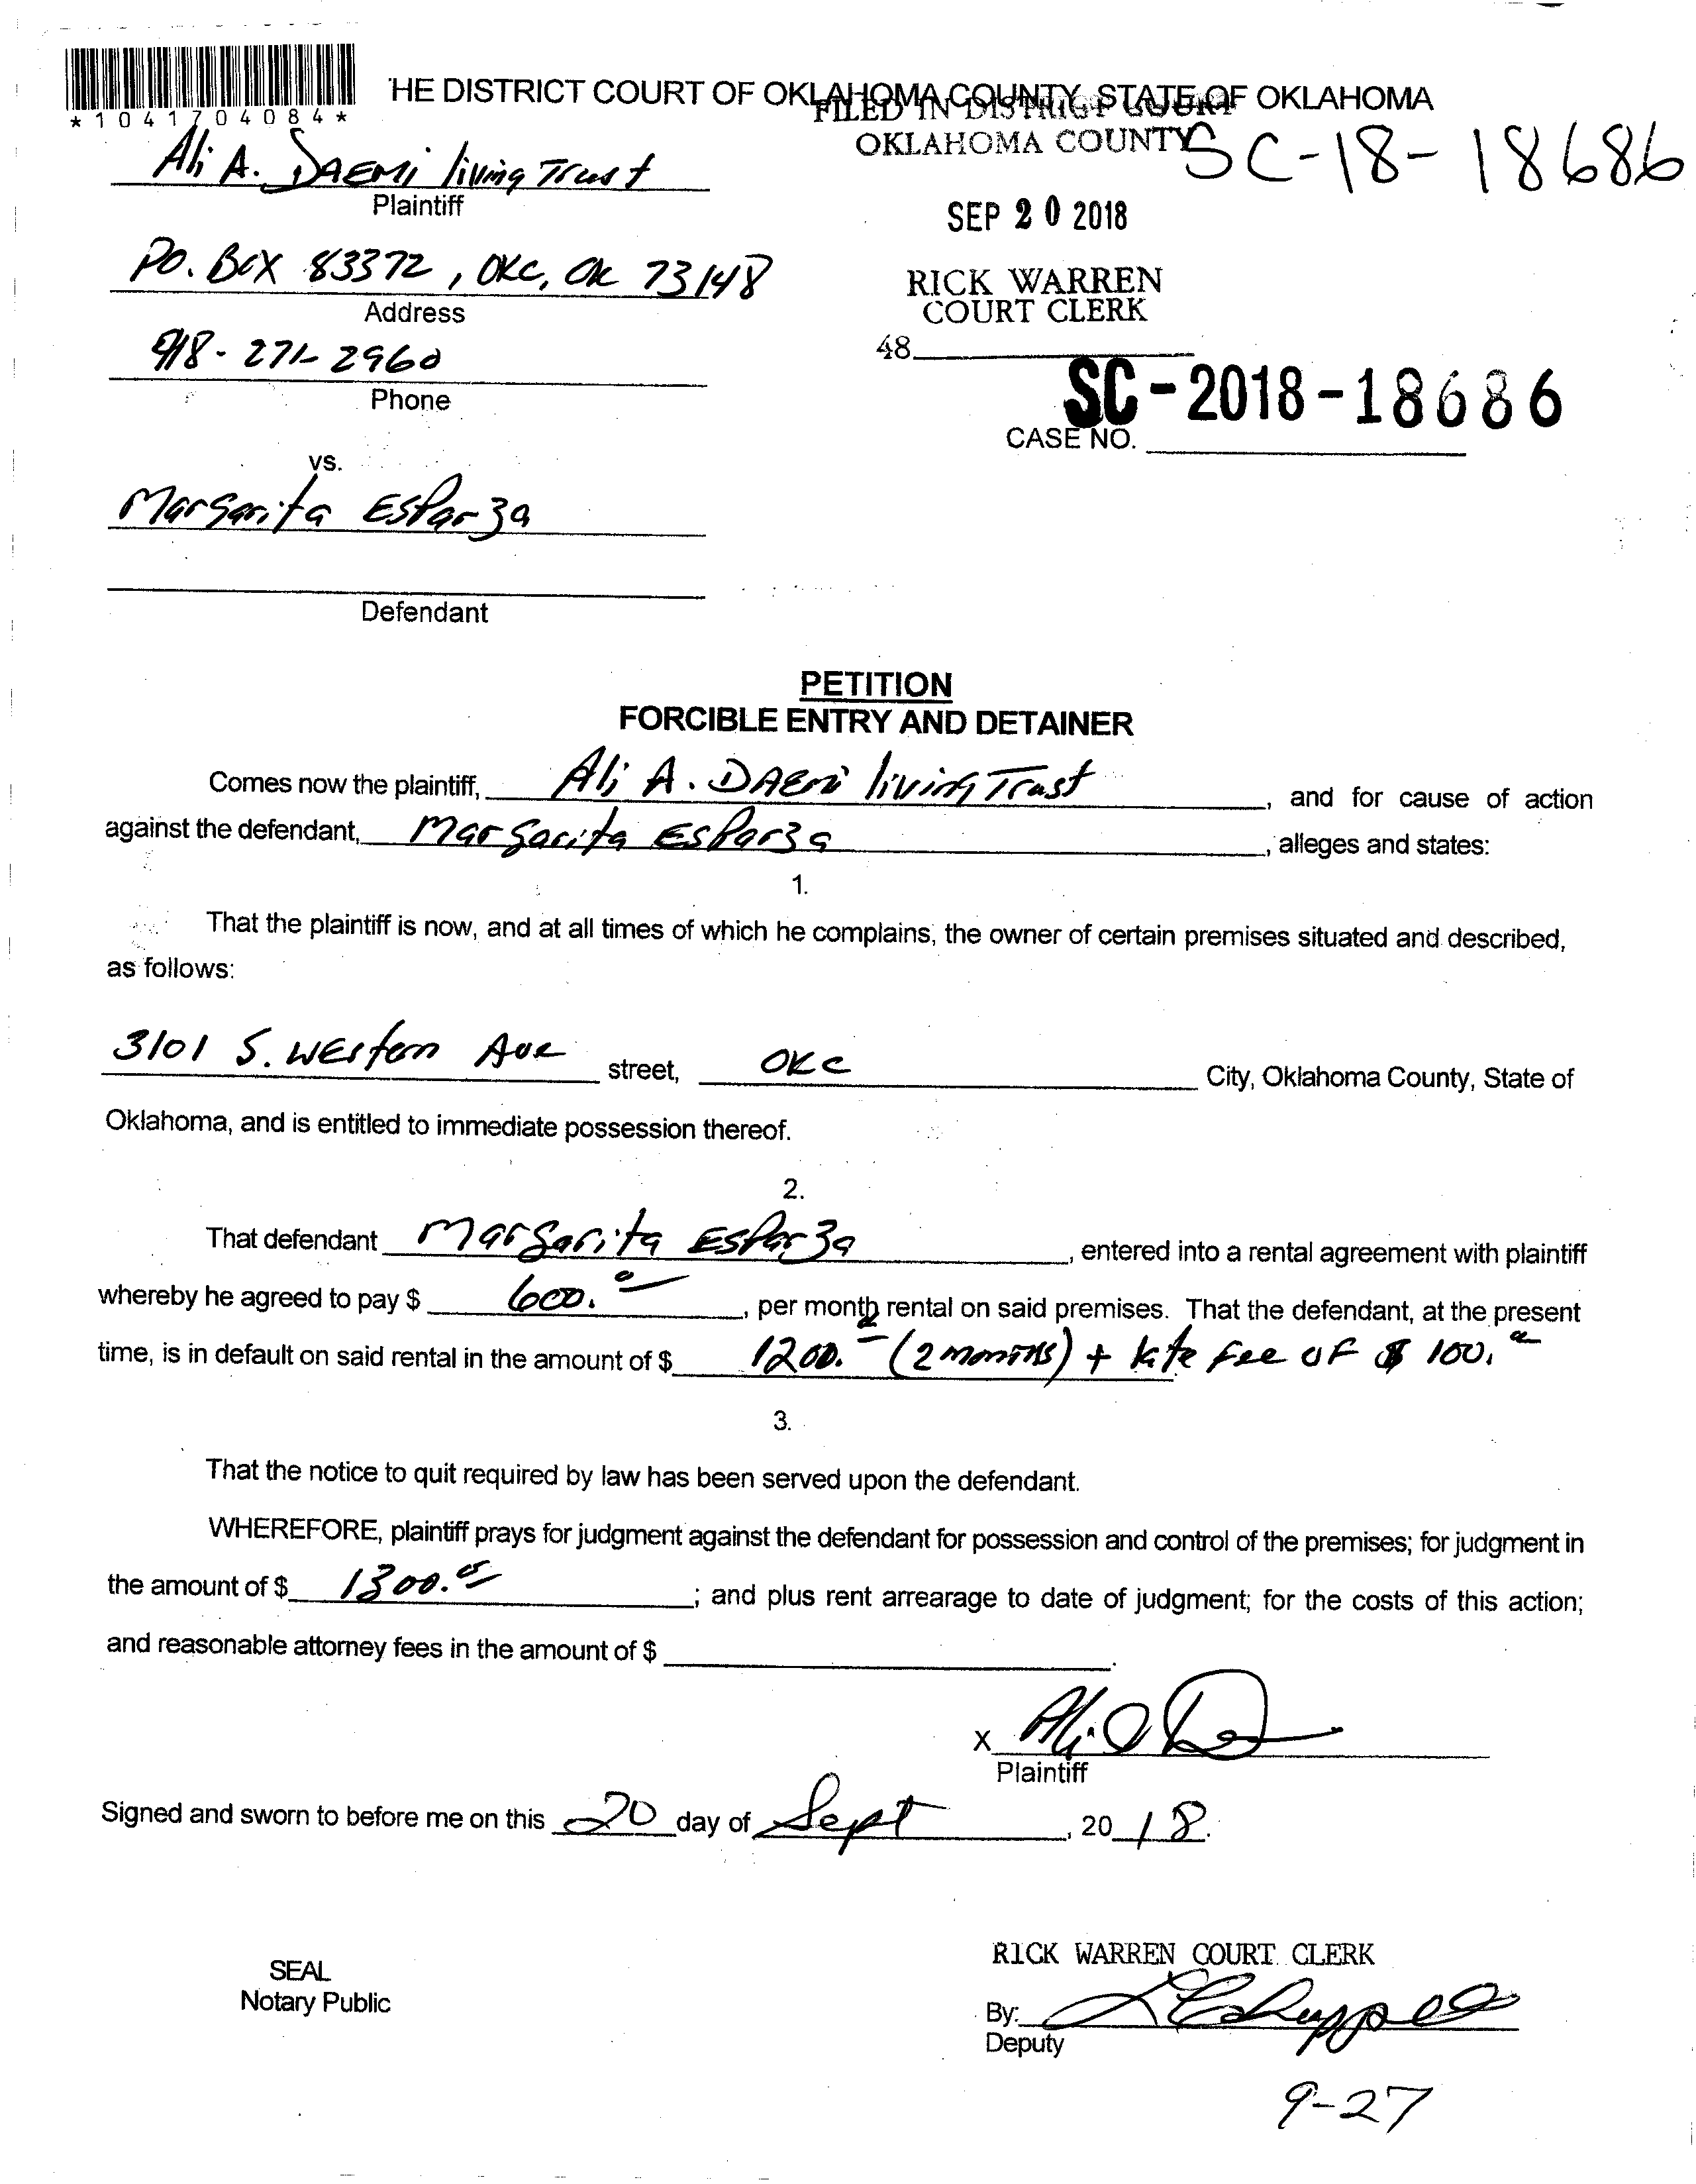 'HE DISTRICT COURT OF OKLAHOMA COUNTY, STATE OF OKLAHOMA
FILED IN DISTRICT COURT
OKLAHOMA COUNTY
*1041704084*
SC-18-18686
Ali A. DAEMi living Trust
Plaintiff
SEP 20 2018
PO. BOX 83372, OKC, OK 73148
Address
RICK WARREN
COURT CLERK
918-271-2960
Phone
48
SC-2018-18686
CASE NO.
vs.
Margarita Esparza
Defendant
PETITION
FORCIBLE ENTRY AND DETAINER
Comes now the plaintiff, Ali A. DAEMi living Trust, and for cause of action
against the defendant, Margarita Esparza, alleges and states:
1.
That the plaintiff is now, and at all times of which he complains, the owner of certain premises situated and described,
as follows:
3101 S. Western Ave street, OKC City, Oklahoma County, State of
Oklahoma, and is entitled to immediate possession thereof.
2.
That defendant Margarita Esparza, entered into a rental agreement with plaintiff
whereby he agreed to pay $ 600.-, per month rental on said premises. That the defendant, at the present
time, is in default on said rental in the amount of $ 1200.- (2 months) + late fee of $ 100.-
3.
That the notice to quit required by law has been served upon the defendant.
WHEREFORE, plaintiff prays for judgment against the defendant for possession and control of the premises; for judgment in
the amount of $ 1300.-; and plus rent arrearage to date of judgment; for the costs of this action;
and reasonable attorney fees in the amount of $ .
X
Plaintiff
Signed and sworn to before me on this 20 day of Sept, 2018.
SEAL
Notary Public
RICK WARREN COURT CLERK
By:
Deputy
9-27